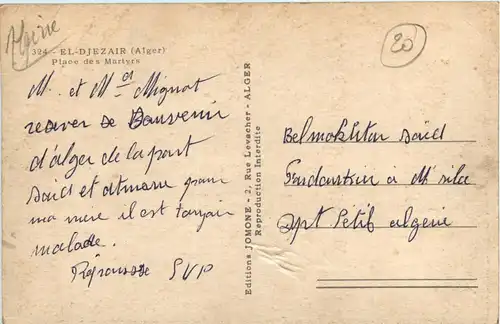 Algérie
20
324 - EL-DJEZAIR (Alger)
Place des Martyrs
M. et Md Mignot
recever se Bouvenir
d'alger de la part
Saïd et atmane pour
ma mere il est toujair
malade.
Réponsse SVP
Editions JOMONE - 2, Rue Levacher - ALGER
Reproduction Interdite
Belmokhtar Saïd
à M'sila
dpt Setif algerie